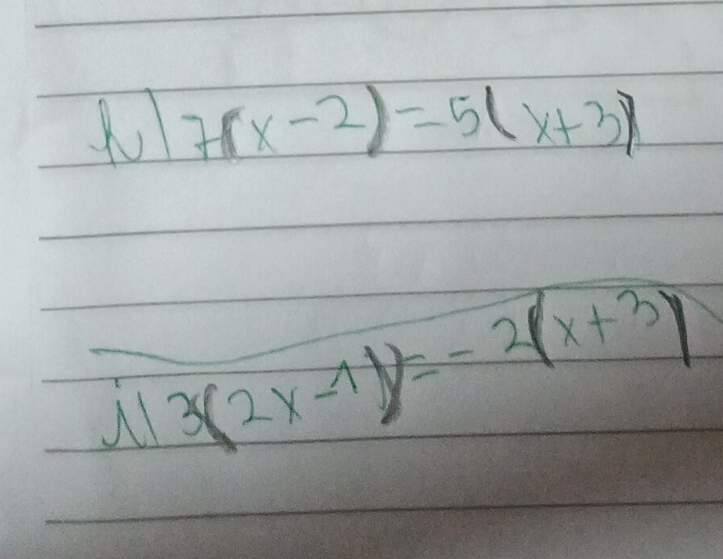 h) 7(x-2)=5(x+3)
i) 3(2x-1)=-2(x+3)